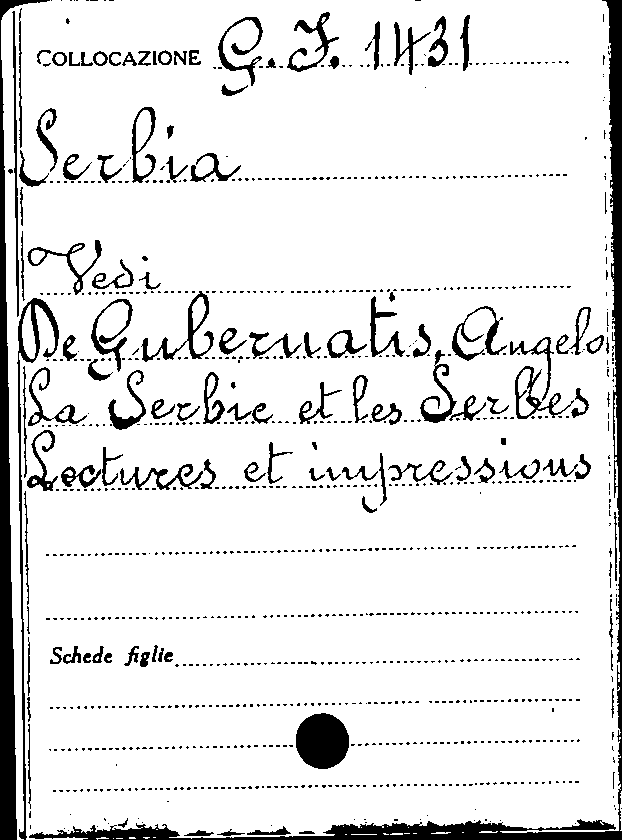 COLLOCAZIONE G. F. 1431
Serbia
Vedi
De Gubernatis, Angelo
La Serbie et les Serbes
Lectures et impressions
Schede figlie